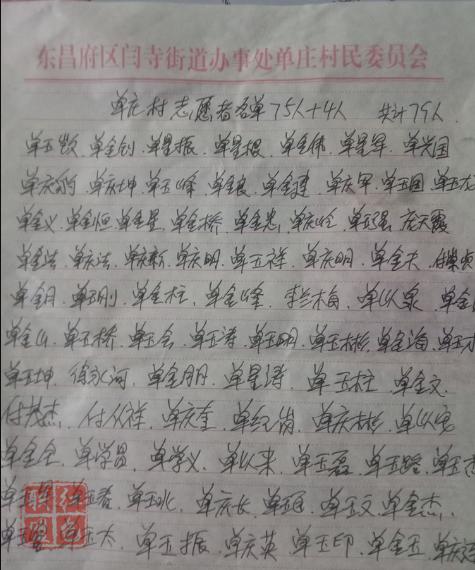 东昌府区闫寺街道办事处单庄村民委员会
单庄村志愿者名单75人+4人 共计79人
单玉凯、单金创、单星振、单星根、单金伟、单星军、单兴国
单庆坤、单玉峰、单金良、单金建、单庆军、单玉国、单玉龙
单金义、单金恒、单金星、单金桥、单金忠、单庆岭、单玉强、庞天霞
单庆法、单庆新、单庆明、单玉祥、单庆明、单金夫、付
单金月、单玉刚、单金柱、单金峰、李兰梅、单以泉、单金
单金山、单玉桥、单玉会、单玉涛、单玉明、单玉彬、单金海、单玉
单玉坤、徐永河、单金朋、单星涛、单玉柱、单金文
付茂杰、付从祥、单庆奎、单纪岗、单庆彬、单以宽
单金全、单学员、单学义、单以来、单玉磊、单玉路、单玉
单玉香、单玉水、单庆长、单玉文、单金杰、
单玉太、单玉振、单庆英、单玉印、单金玉、单庆